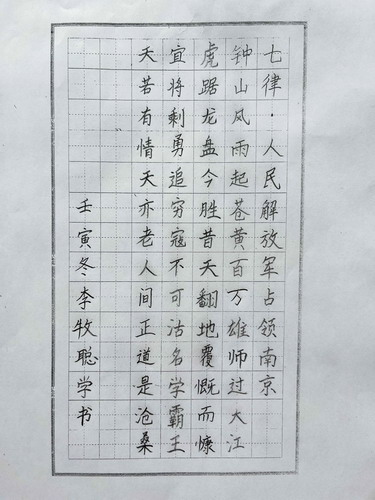 七律·人民解放军占领南京
钟山风雨起苍黄百万雄师过大江
虎踞龙盘今胜昔天翻地覆慨而慷
宜将剩勇追穷寇不可沽名学霸王
天若有情天亦老人间正道是沧桑
壬寅冬李牧聪学书